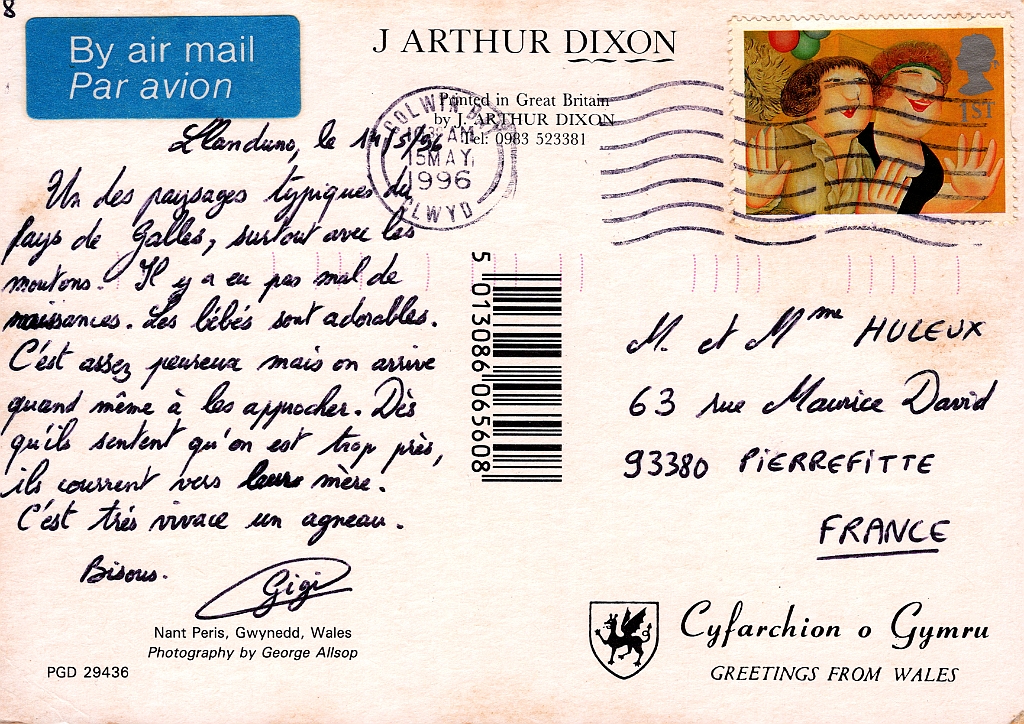 8
By air mail
Par avion
J ARTHUR DIXON
Printed in Great Britain
by J. ARTHUR DIXON
Tel: 0983 523381
COLWYN BAY
AM
15 MAY
1996
CLWYD
1ST
Llanduno, le 14/5/96
Un des paysages typiques du
Pays de Galles, surtout avec les
moutons. Il y a eu pas mal de
naissances. Les bébés sont adorables.
C'est assez peureux mais on arrive
quand même à les approcher. Dès
qu'ils sentent qu'on est trop près,
ils courrent vers leurs mère.
C'est très vivace un agneau.
Bisous.
Gigi
5 013086 065608
M. et Mme HULEUX
63 rue Maurice David
93380 PIERREFITTE
FRANCE
Nant Peris, Gwynedd, Wales
Photography by George Allsop
PGD 29436
Cyfarchion o Gymru
GREETINGS FROM WALES